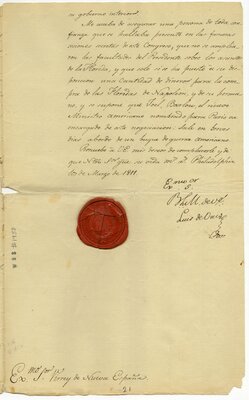 su gobierno interior.
Me acaba de asegurar una persona de toda con
fianza que se hallaba presente en las ferma
ciones secretas de este Congreso, que no se amplia
ron las facultades del Presidente sobre los asuntos
de la Florida, y que solo se le ha puesto a su dis
posicion una Cantidad de Dinero para la com
pra de las Floridas de Napoleon, y de su herma
no, y se supone que Joel, Barlow el nuevo
Ministro americano nombrado para Paris va
encargado de esta negociacion. Sale en breve
a bordo de un buque de guerra americano.
Renuebo a V.E. mis deseos de complacerle, y de
que N. Sor. gue. su vida ms. as. Philadelphia
10 de Marzo de 1811.
Exmo. Sor.
B.L.M. de V.E.
Luis de Onis
Exmo. Sor. Virrey de Nueva España